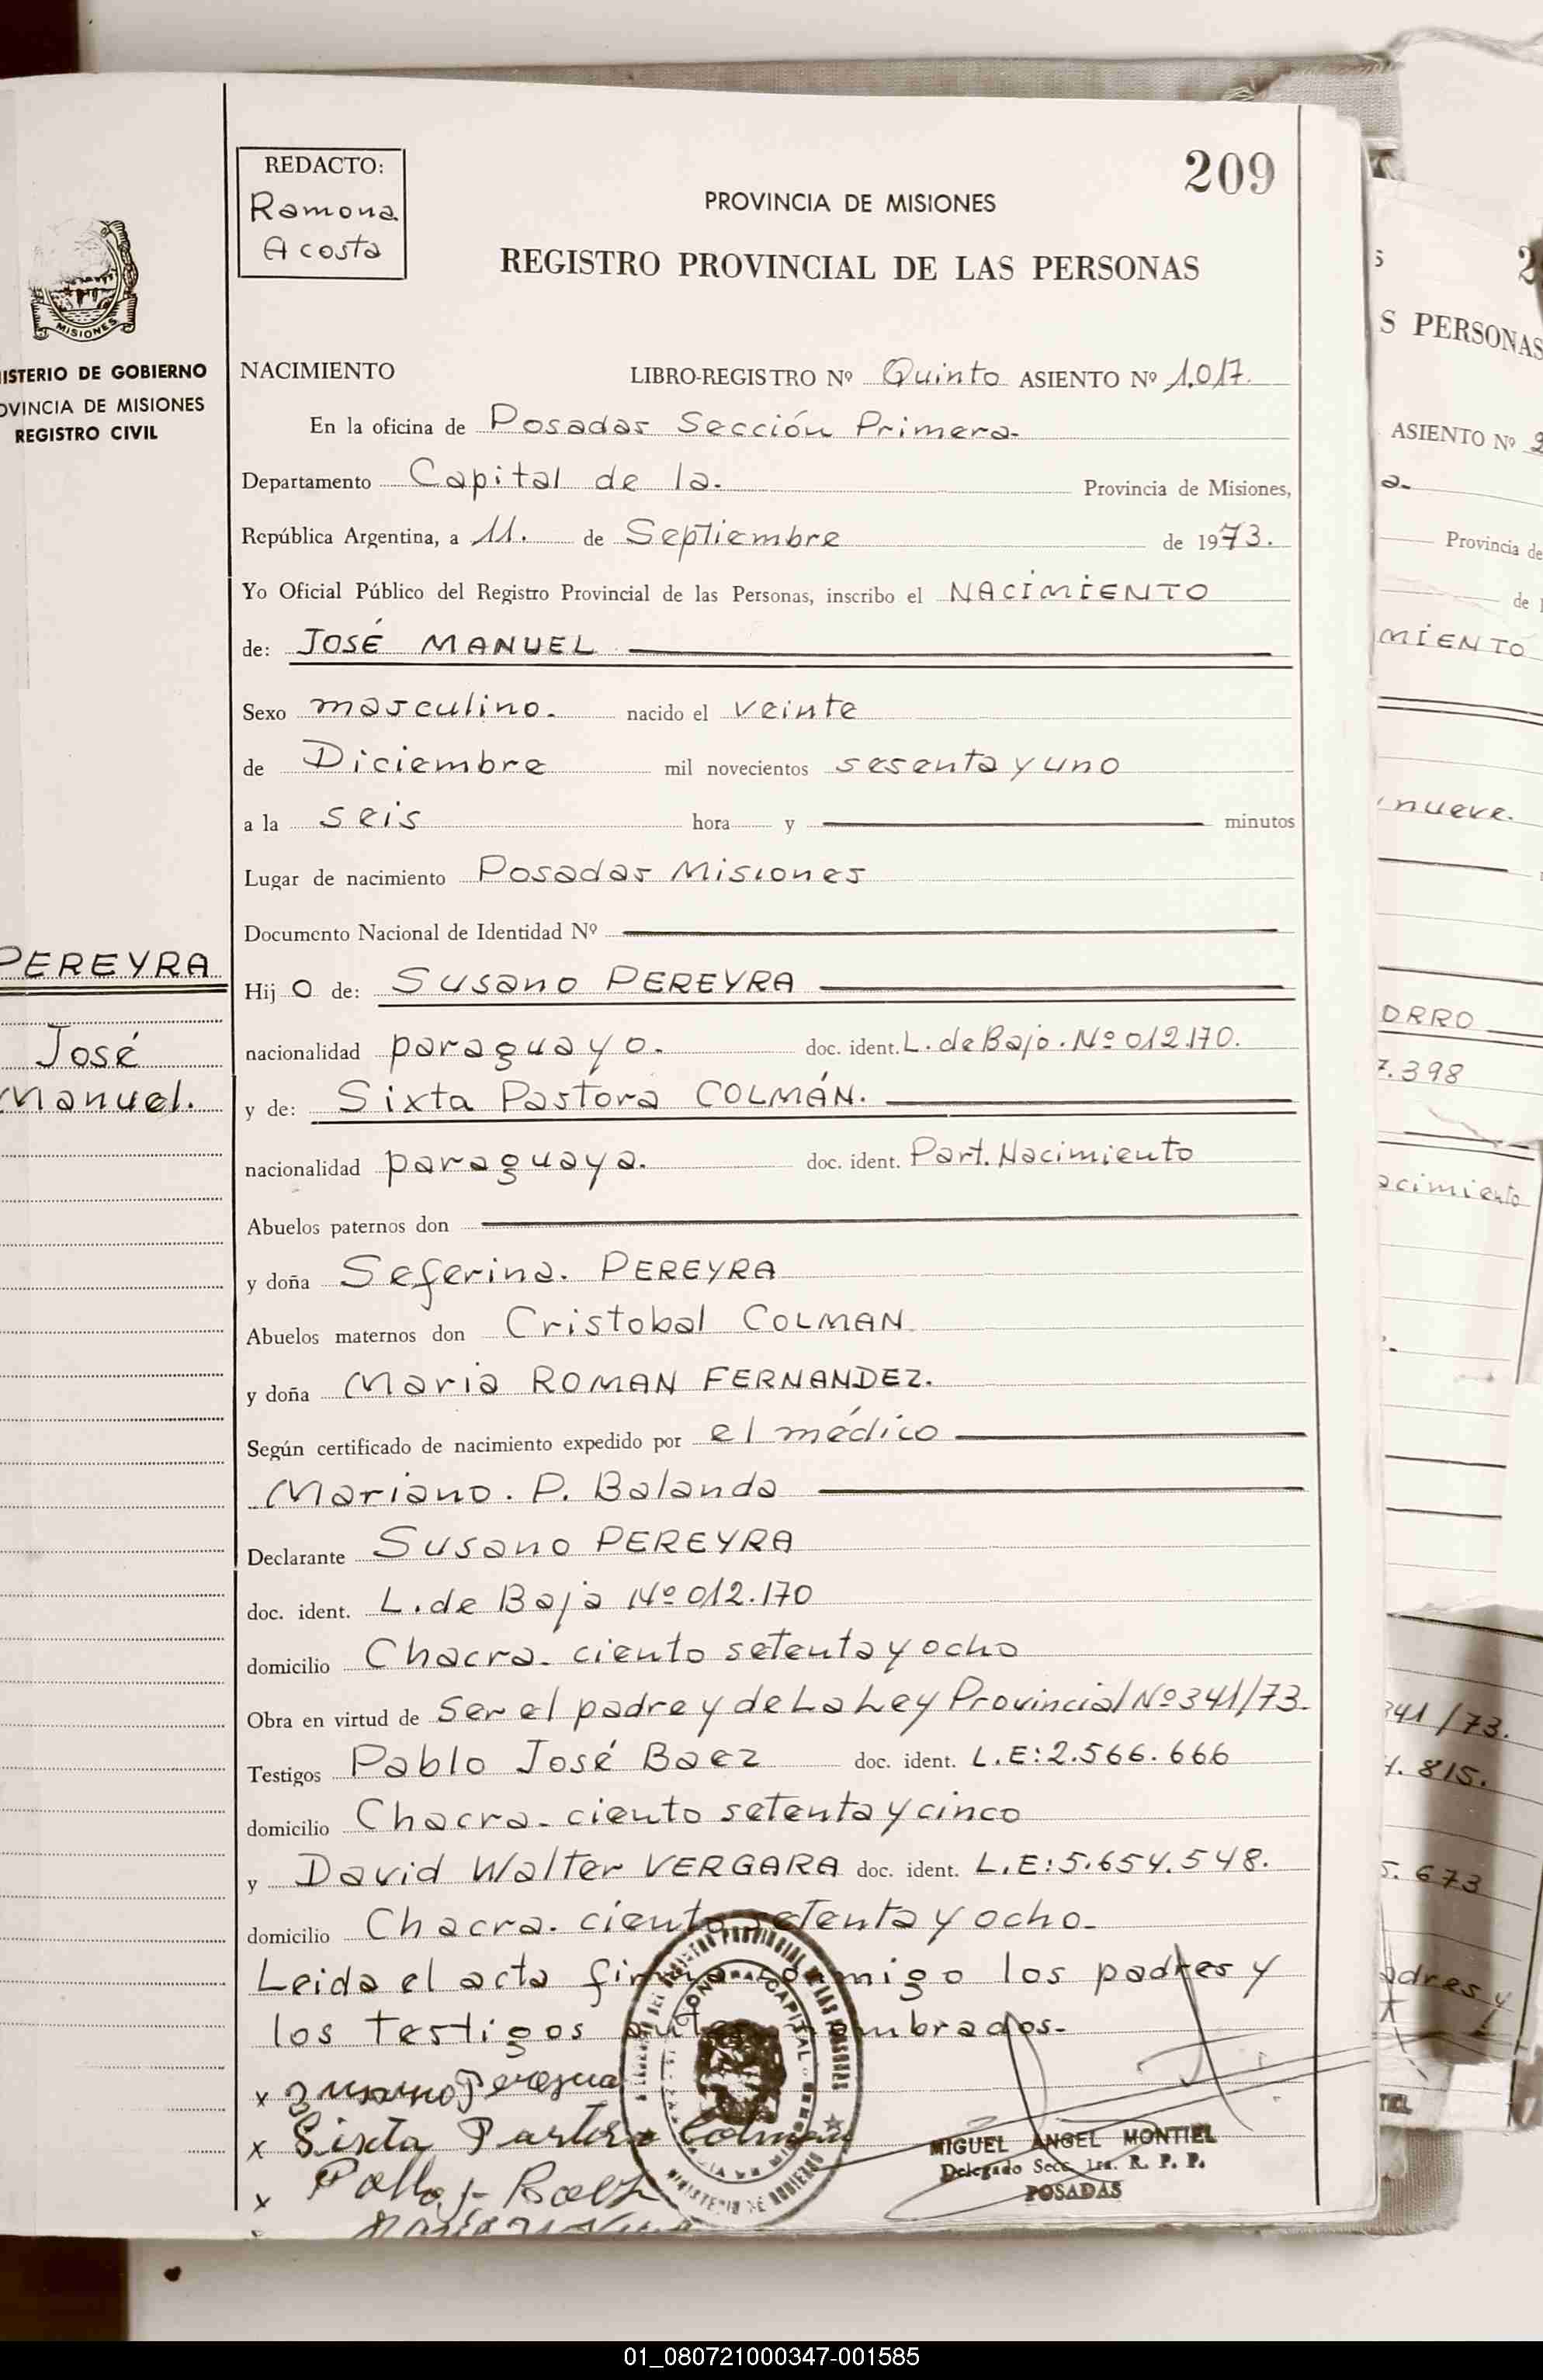 REDACTO:
Ramona
Acosta
209
PROVINCIA DE MISIONES
REGISTRO PROVINCIAL DE LAS PERSONAS
MISIONES
ISTERIO DE GOBIERNO
OVINCIA DE MISIONES
REGISTRO CIVIL
PEREYRA
José
Manuel.
NACIMIENTO LIBRO-REGISTRO Nº Quinto ASIENTO Nº 1.017.
En la oficina de Posadas Sección Primera-
Departamento Capital de la. Provincia de Misiones,
República Argentina, a 11. de Septiembre de 1973.
Yo Oficial Público del Registro Provincial de las Personas, inscribo el NACIMIENTO
de: JOSÉ MANUEL
Sexo masculino. nacido el veinte
de Diciembre mil novecientos sesenta y uno
a la seis hora y minutos
Lugar de nacimiento Posadas Misiones
Documento Nacional de Identidad Nº
Hij o de: Susano PEREYRA
nacionalidad paraguayo. doc. ident. L. de Bajo. Nº 012.170.
y de: Sixta Pastora COLMÁN.
nacionalidad paraguaya. doc. ident. Part. Nacimiento
Abuelos paternos don
y doña Seferina. PEREYRA
Abuelos maternos don Cristobal COLMAN
y doña Maria ROMAN FERNANDEZ.
Según certificado de nacimiento expedido por el médico
Mariano. P. Balanda
Declarante Susano PEREYRA
doc. ident. L. de Baja Nº 012.170
domicilio Chacra. ciento setenta y ocho
Obra en virtud de Ser el padre y de La Ley Provincial Nº 341/73.
Testigos Pablo José Baez doc. ident. L.E: 2.566.666
domicilio Chacra. ciento setenta y cinco
y David Walter VERGARA doc. ident. L.E: 5.654.548.
domicilio Chacra. ciento setenta y ocho-
Leida el acta conmigo los padres y
los testigos nombrados.
x Pereyra
x Sixta Pastora Colman
x Baez
MIGUEL ANGEL MONTIEL
Delegado Secc. 1ra. R. P. P.
POSADAS
S PERSONAS
ASIENTO Nº
a.
Provincia de
de
MIENTO
nueve.
ORRO
7.398
acimiento
341/73.
815.
5.673
adres y
01_080721000347-001585